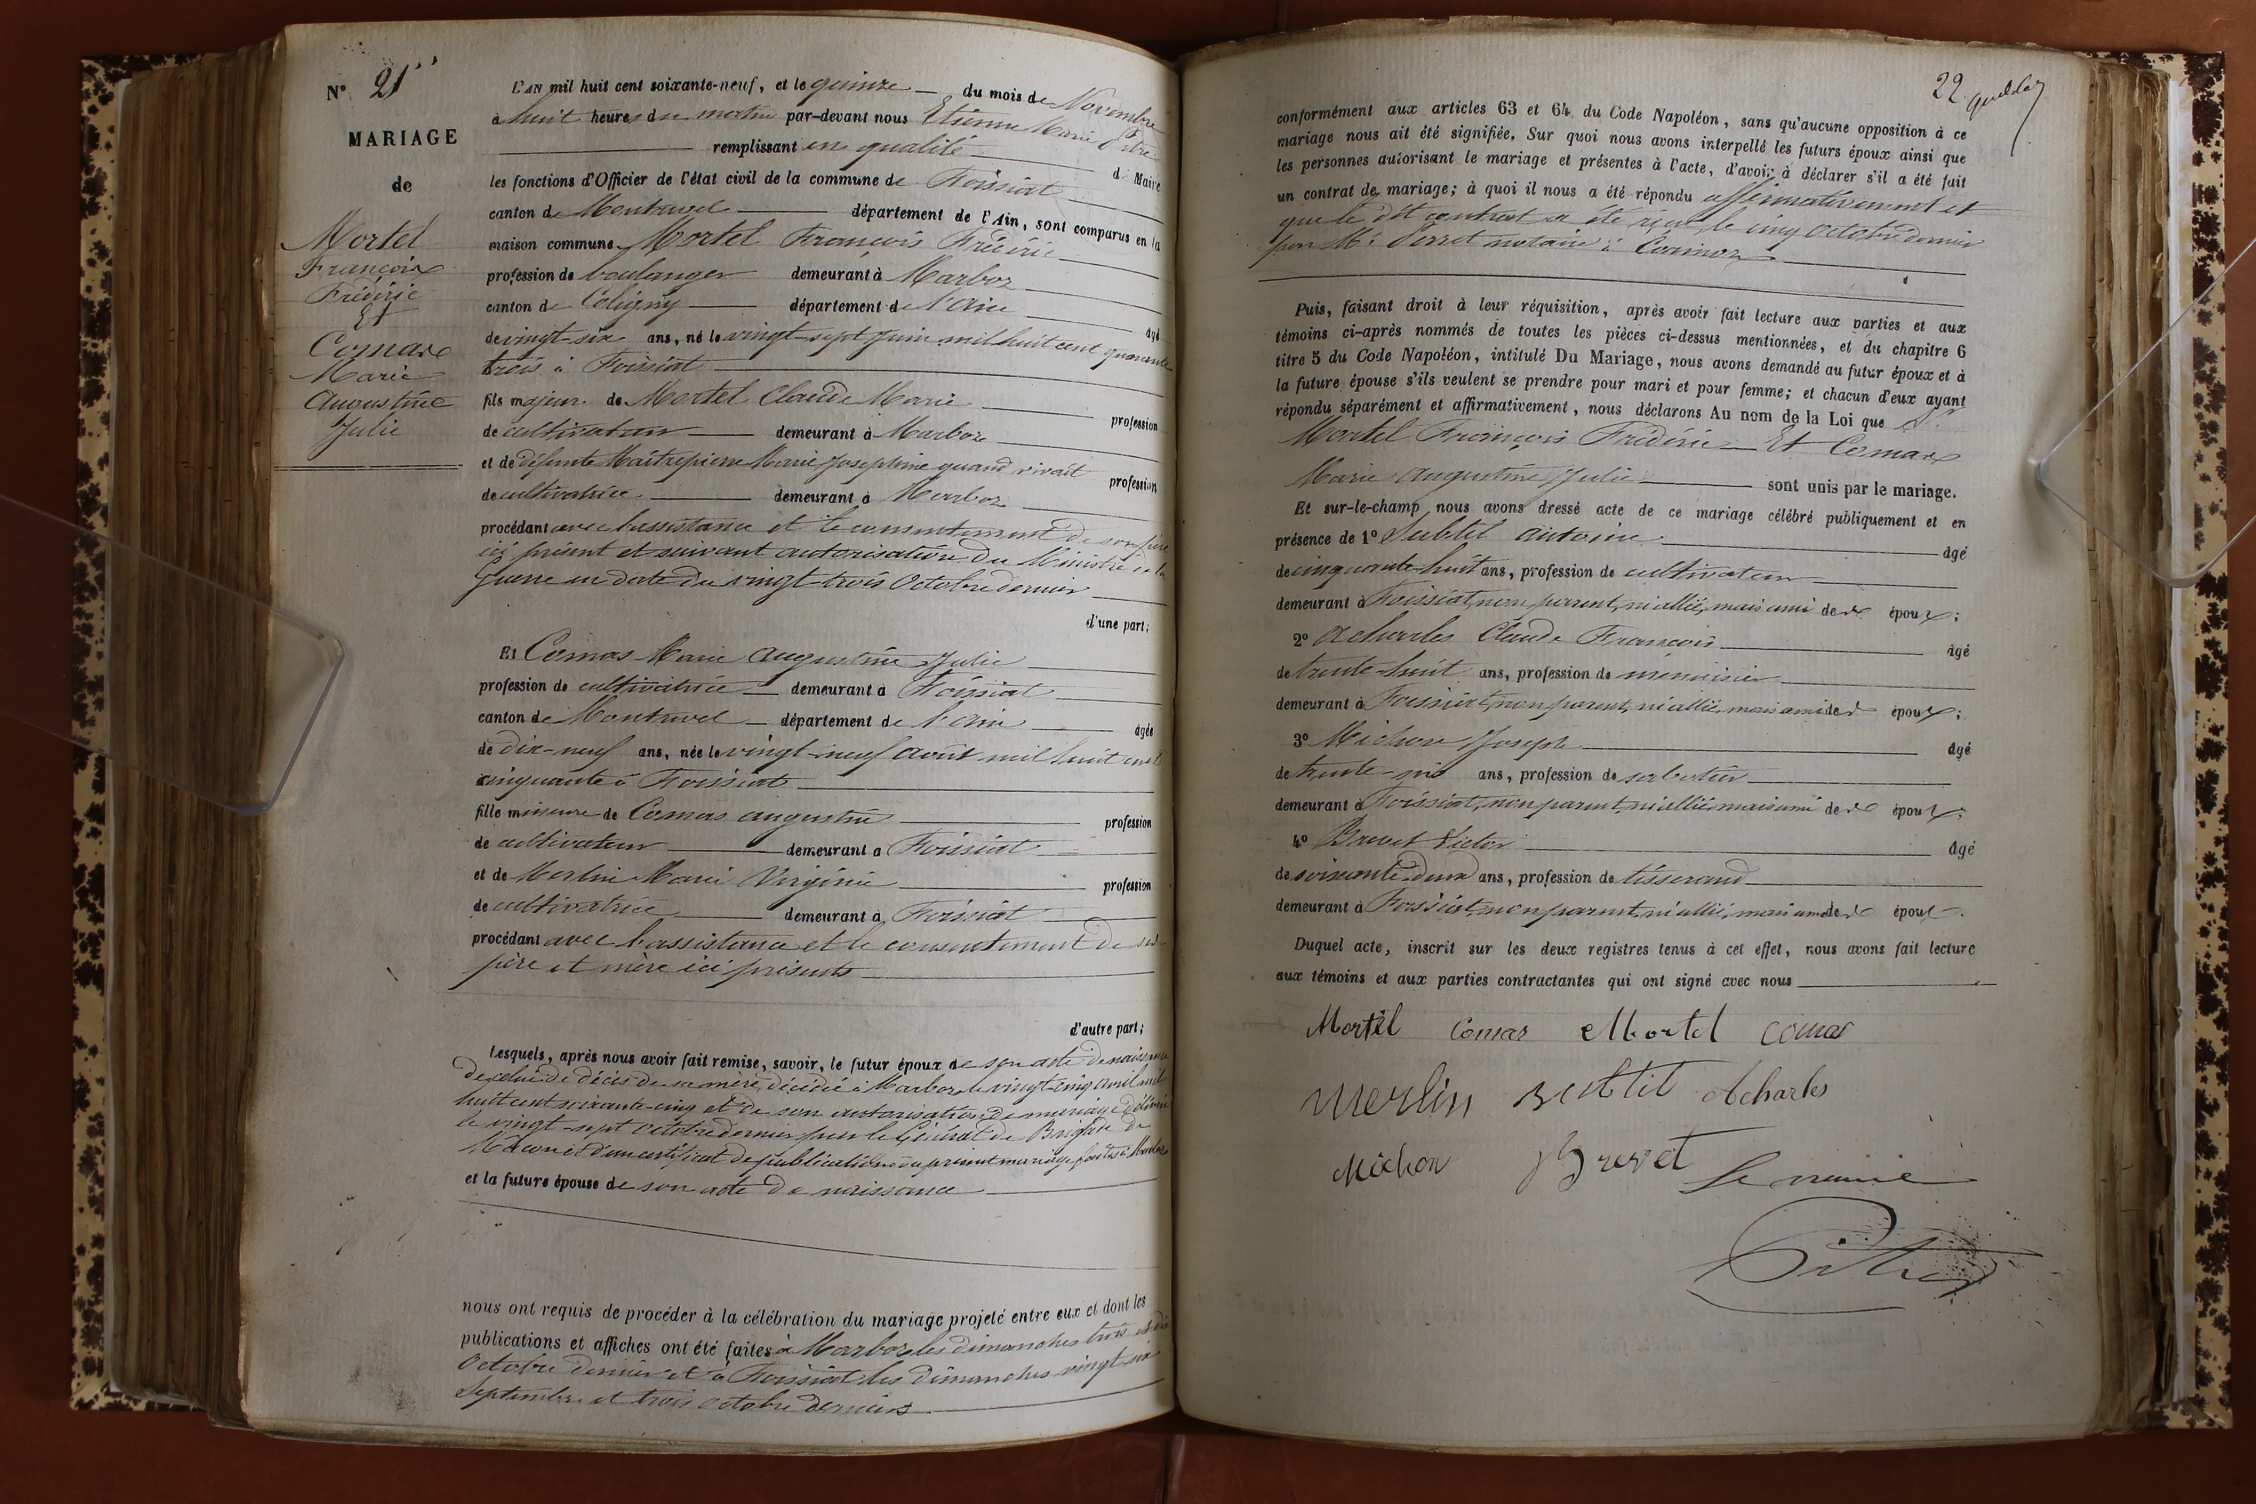 N° 21
MARIAGE
de
Mortel
François
Frédéric
Et
Comas
Marie
Augustine
Julie
L'AN mil huit cent soixante-neuf, et le quinze du mois de Novembre
à huit heures du matin par-devant nous Etienne Marie
remplissant en qualité de Maire
les fonctions d'Officier de l'état civil de la commune de Foissiat
canton de Montrevel département de l'Ain, sont comparus en la
maison commune Mortel François Frédéric
profession de boulanger demeurant à Marboz
canton de Coligny département de l'ain âgé
de vingt-six ans, né le vingt-sept juin mil huit cent quarante
trois à Foissiat
fils majeur de Mortel Claude Marie profession
de cultivateur demeurant à Marboz
et de défunte Maitrepierre Marie Josephine quand vivait profession
de cultivatrice demeurant à Marboz
procédant avec l'assistance et le consentement de son père
ici présent et suivant autorisation du Ministre de la
Guerre en date du vingt-trois Octobre dernier
d'une part;
Et Comas Marie Augustine Julie
profession de cultivatrice demeurant à Foissiat
canton de Montrevel département de l'ain âgée
de dix-neuf ans, née le vingt-neuf août mil huit cent
cinquante à Foissiat
fille mineure de Comas augustin profession
de cultivateur demeurant à Foissiat
et de Merlin Marie Virginie profession
de cultivatrice demeurant à Foissiat
procédant avec l'assistance et le consentement de ses
père et mère ici présents
d'autre part;
Lesquels, après nous avoir fait remise, savoir, le futur époux de son acte de naissance
de celui de décès de sa mère, décédée à Marboz le vingt-cinq avril mil
huit cent soixante-cinq et de son autorisation de mariage délivrée
le vingt-sept octobre dernier par le Général de Brigade de
Mâcon et d'un certificat de publications du présent mariage faites à Marboz
et la future épouse de son acte de naissance
nous ont requis de procéder à la célébration du mariage projeté entre eux et dont les
publications et affiches ont été faites à Marboz les dimanches trois et dix
Octobre dernier et à Foissiat les dimanches vingt-six
Septembre et trois octobre derniers
22
conformément aux articles 63 et 64 du Code Napoléon, sans qu'aucune opposition à ce
mariage nous ait été signifiée. Sur quoi nous avons interpellé les futurs époux ainsi que
les personnes autorisant le mariage et présentes à l'acte, d'avoir à déclarer s'il a été fait
un contrat de mariage; à quoi il nous a été répondu affirmativement et
que le dit contrat a été reçu le cinq octobre dernier
par Me Perret notaire à Cormoz
Puis, faisant droit à leur réquisition, après avoir fait lecture aux parties et aux
témoins ci-après nommés de toutes les pièces ci-dessus mentionnées, et du chapitre 6
titre 5 du Code Napoléon, intitulé Du Mariage, nous avons demandé au futur époux et à
la future épouse s'ils veulent se prendre pour mari et pour femme; et chacun d'eux ayant
répondu séparément et affirmativement, nous déclarons Au nom de la Loi que
Mortel François Frédéric Et Comas
Marie Augustine Julie sont unis par le mariage.
Et sur-le-champ nous avons dressé acte de ce mariage célébré publiquement et en
présence de 1° Subtil antoine âgé
de cinquante-huit ans, profession de cultivateur
demeurant à Foissiat, non parent, ni allié, mais ami des époux;
2° Acharles Claude François âgé
de trente-huit ans, profession de menuisier
demeurant à Foissiat, non parent, ni allié, mais ami des époux;
3° Michon Joseph âgé
de trente-six ans, profession de sabotier
demeurant à Foissiat, non parent, ni allié mais ami des époux;
4° Brevet Victor âgé
de soixante-deux ans, profession de tisserand
demeurant à Foissiat, non parent, ni allié, mais ami des époux.
Duquel acte, inscrit sur les deux registres tenus à cet effet, nous avons fait lecture
aux témoins et aux parties contractantes qui ont signé avec nous
Mortel Comas Mortel comas
Merlin Subtil Acharles
Michon Brevet Le maire